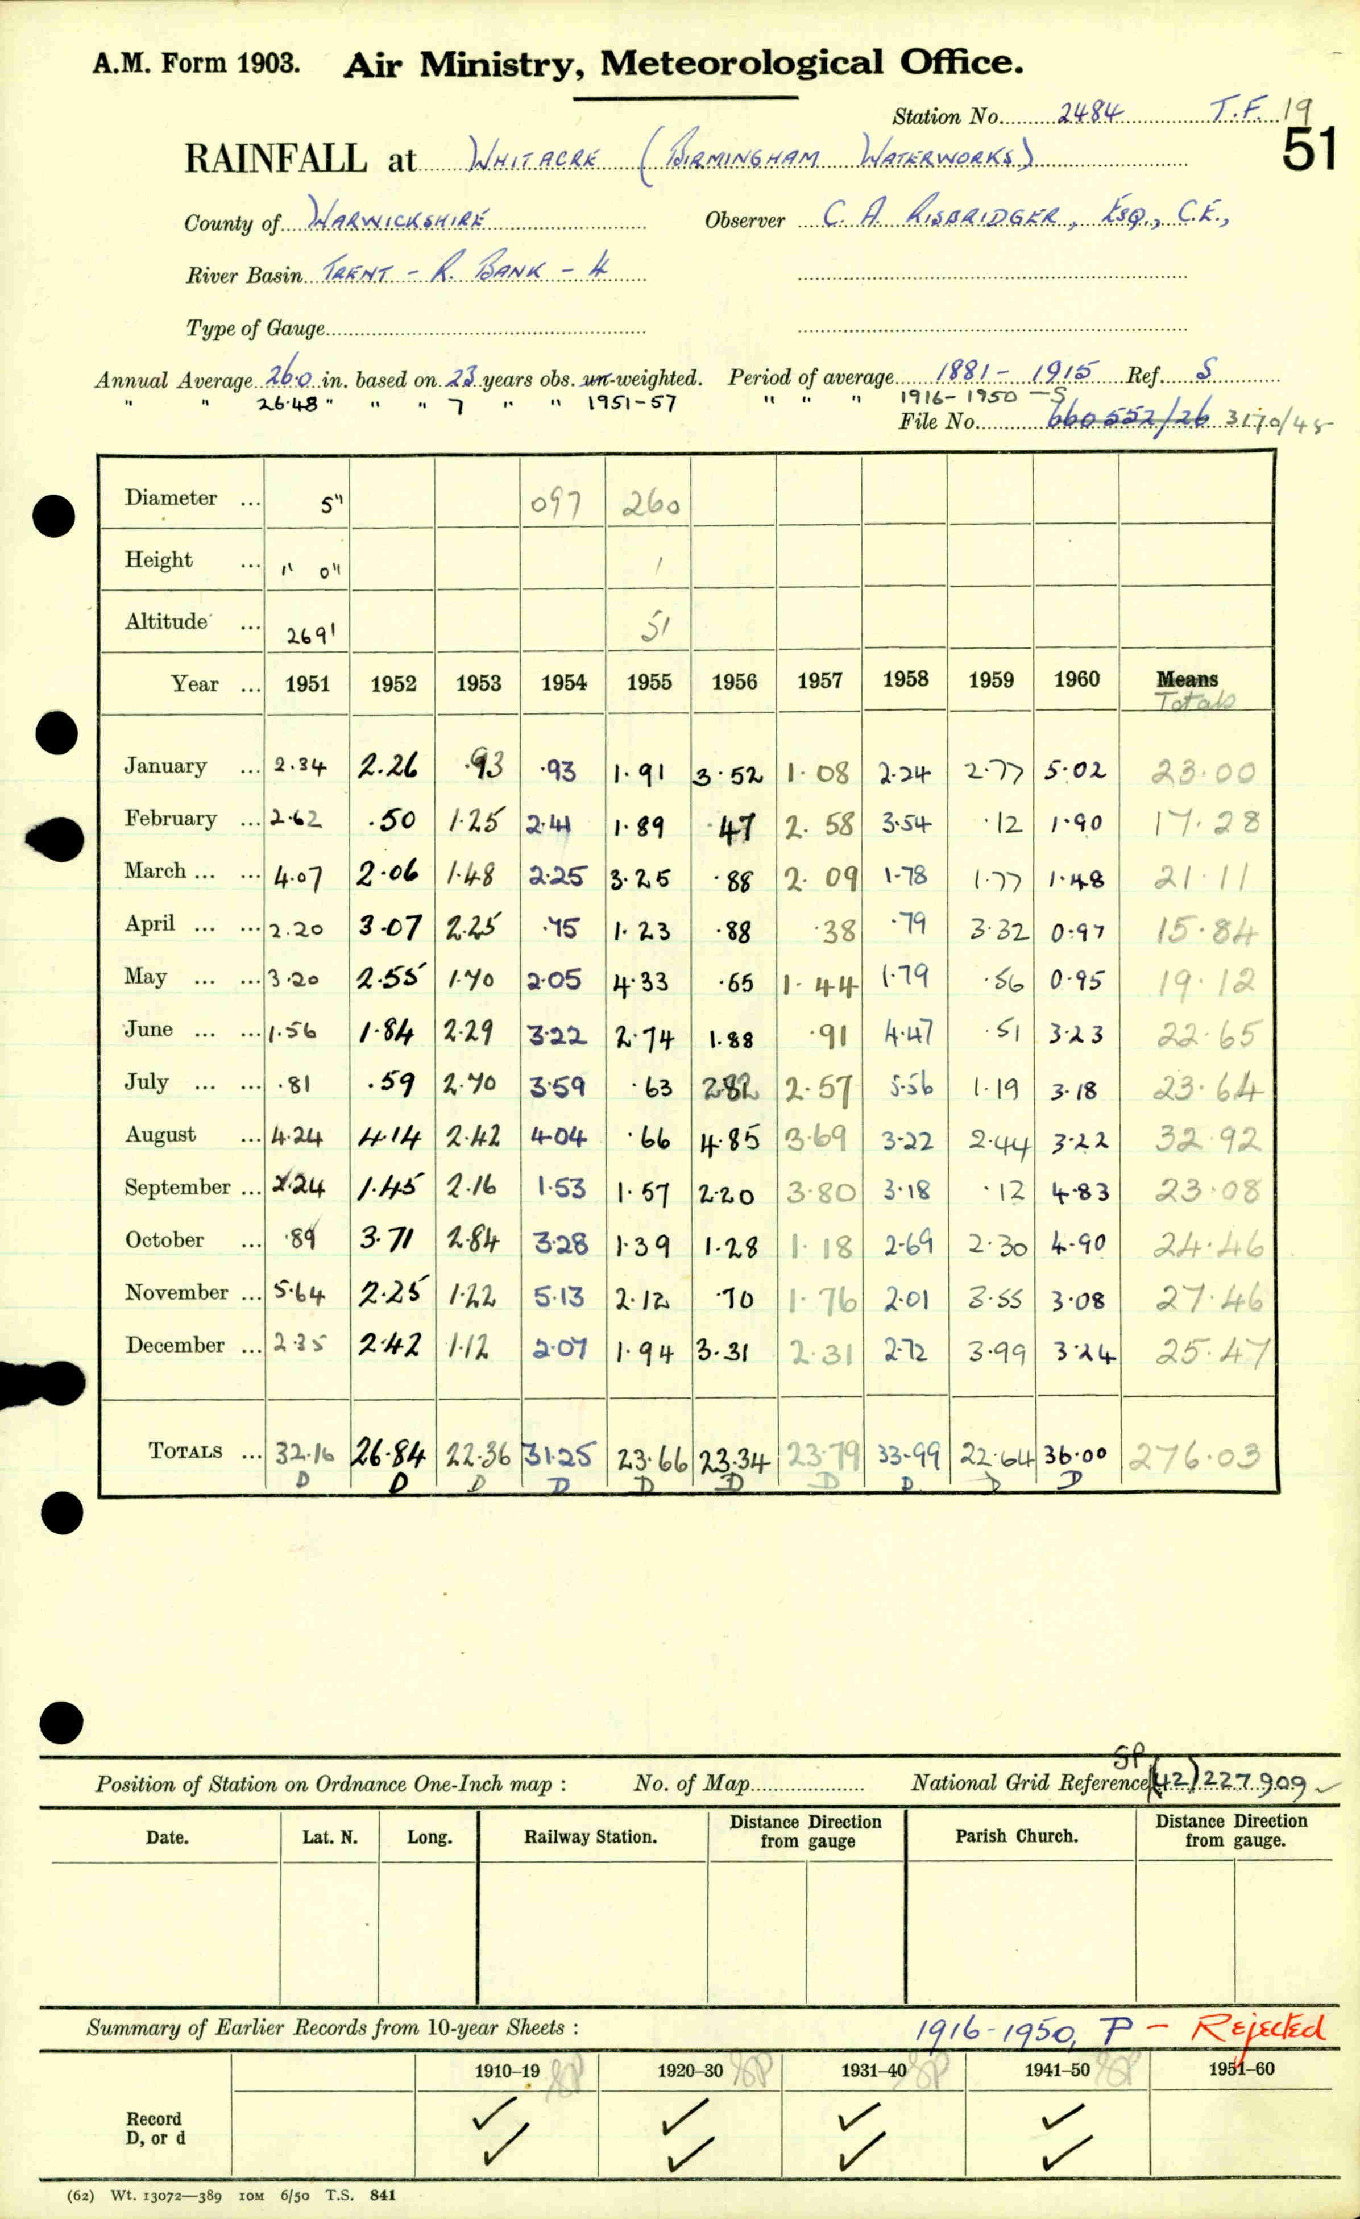 A.M. Form 1903. Air Ministry, Meteorological Office.
Station No. 2484 T.F. 19
51
RAINFALL at WHITACRE (BIRMINGHAM WATERWORKS)
County of WARWICKSHIRE Observer C. A. RISBRIDGER, ESQ., C.E.,
River Basin TRENT - R. BANK - 4
Type of Gauge
Annual Average 26.0 in. based on 23 years obs. un-weighted. Period of average 1881 - 1915 Ref. S
" " 26.48 " " " 7 " " 1951-57 " " " 1916-1950 - S
File No. 660552/26 3170/48
Diameter ... 5" 097 260
Height ... 1' 0" 1
Altitude ... 269' 51
Year ... 1951 1952 1953 1954 1955 1956 1957 1958 1959 1960 Means
Totals
January ... 2.34 2.26 .93 .93 1.91 3.52 1.08 2.24 2.77 5.02 23.00
February ... 2.62 .50 1.25 2.41 1.89 .47 2.58 3.54 .12 1.90 17.28
March ... ... 4.07 2.06 1.48 2.25 3.25 .88 2.09 1.78 1.77 1.48 21.11
April ... ... 2.20 3.07 2.25 .75 1.23 .88 .38 .79 3.32 0.97 15.84
May ... ... 3.20 2.55 1.70 2.05 4.33 .65 1.44 1.79 .56 0.95 19.12
June ... ... 1.56 1.84 2.29 3.22 2.74 1.88 .91 4.47 .51 3.23 22.65
July ... ... .81 .59 2.70 3.59 .63 2.82 2.57 5.56 1.19 3.18 23.64
August ... 4.24 4.14 2.42 4.04 .66 4.85 3.69 3.22 2.44 3.22 32.92
September ... 2.24 1.45 2.16 1.53 1.57 2.20 3.80 3.18 .12 4.83 23.08
October ... .89 3.71 2.84 3.28 1.39 1.28 1.18 2.69 2.30 4.90 24.46
November ... 5.64 2.25 1.22 5.13 2.12 .70 1.76 2.01 3.55 3.08 27.46
December ... 2.35 2.42 1.12 2.07 1.94 3.31 2.31 2.72 3.99 3.24 25.47
TOTALS ... 32.16 26.84 22.36 31.25 23.66 23.34 23.79 33.99 22.64 36.00 276.03
D D D D D D D D D D
SP
Position of Station on Ordnance One-Inch map : No. of Map National Grid Reference (42) 227909
Date. Lat. N. Long. Railway Station. Distance Direction from gauge Parish Church. Distance Direction from gauge.
Summary of Earlier Records from 10-year Sheets : 1916-1950, P - Rejected
1910-19 1920-30 1931-40 1941-50 1951-60
Record
D, or d
(62) Wt. 13072—389 10M 6/50 T.S. 841